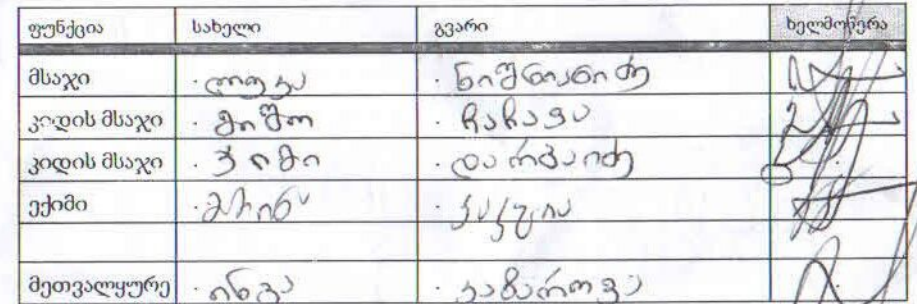 ფუნქცია სახელი გვარი ხელმოწერა
მსაჯი ლუკა ნიშნიანიძე
კიდის მსაჯი მიშო ჩაჩავა
კიდის მსაჯი ჯიმი დარბაიძე
ექიმი
მეთვალყურე ინგა კაზაროვა